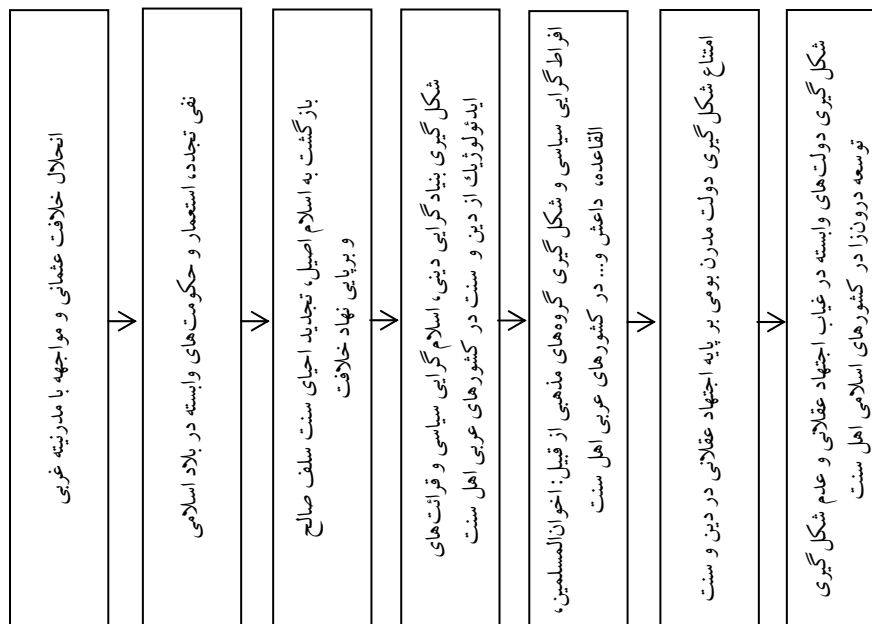 انحلال خلافت عثمانی و مواجهه با مدرنیته غربی
نفی تجدد، استعمار و حکومت‌های وابسته در بلاد اسلامی
بازگشت به اسلام اصیل، تجدید احیای سنت سلف صالح
و برپایی نهاد خلافت
شکل گیری بنیاد گرایی دینی، اسلام گرایی سیاسی و قرائت‌های
ایدئولوژیك از دین و سنت در کشورهای عربی اهل سنت
افراط گرایی سیاسی و شکل گیری گروه‌های مذهبی از قبیل: اخوان‌المسلمین،
القاعده، داعش و... در کشورهای عربی اهل سنت
امتناع شکل گیری دولت مدرن بومی بر پایه اجتهاد عقلانی در دین و سنت
شکل گیری دولت‌های وابسته در غیاب اجتهاد عقلانی و عدم شکل گیری
توسعه درون‌زا در کشورهای اسلامی اهل سنت